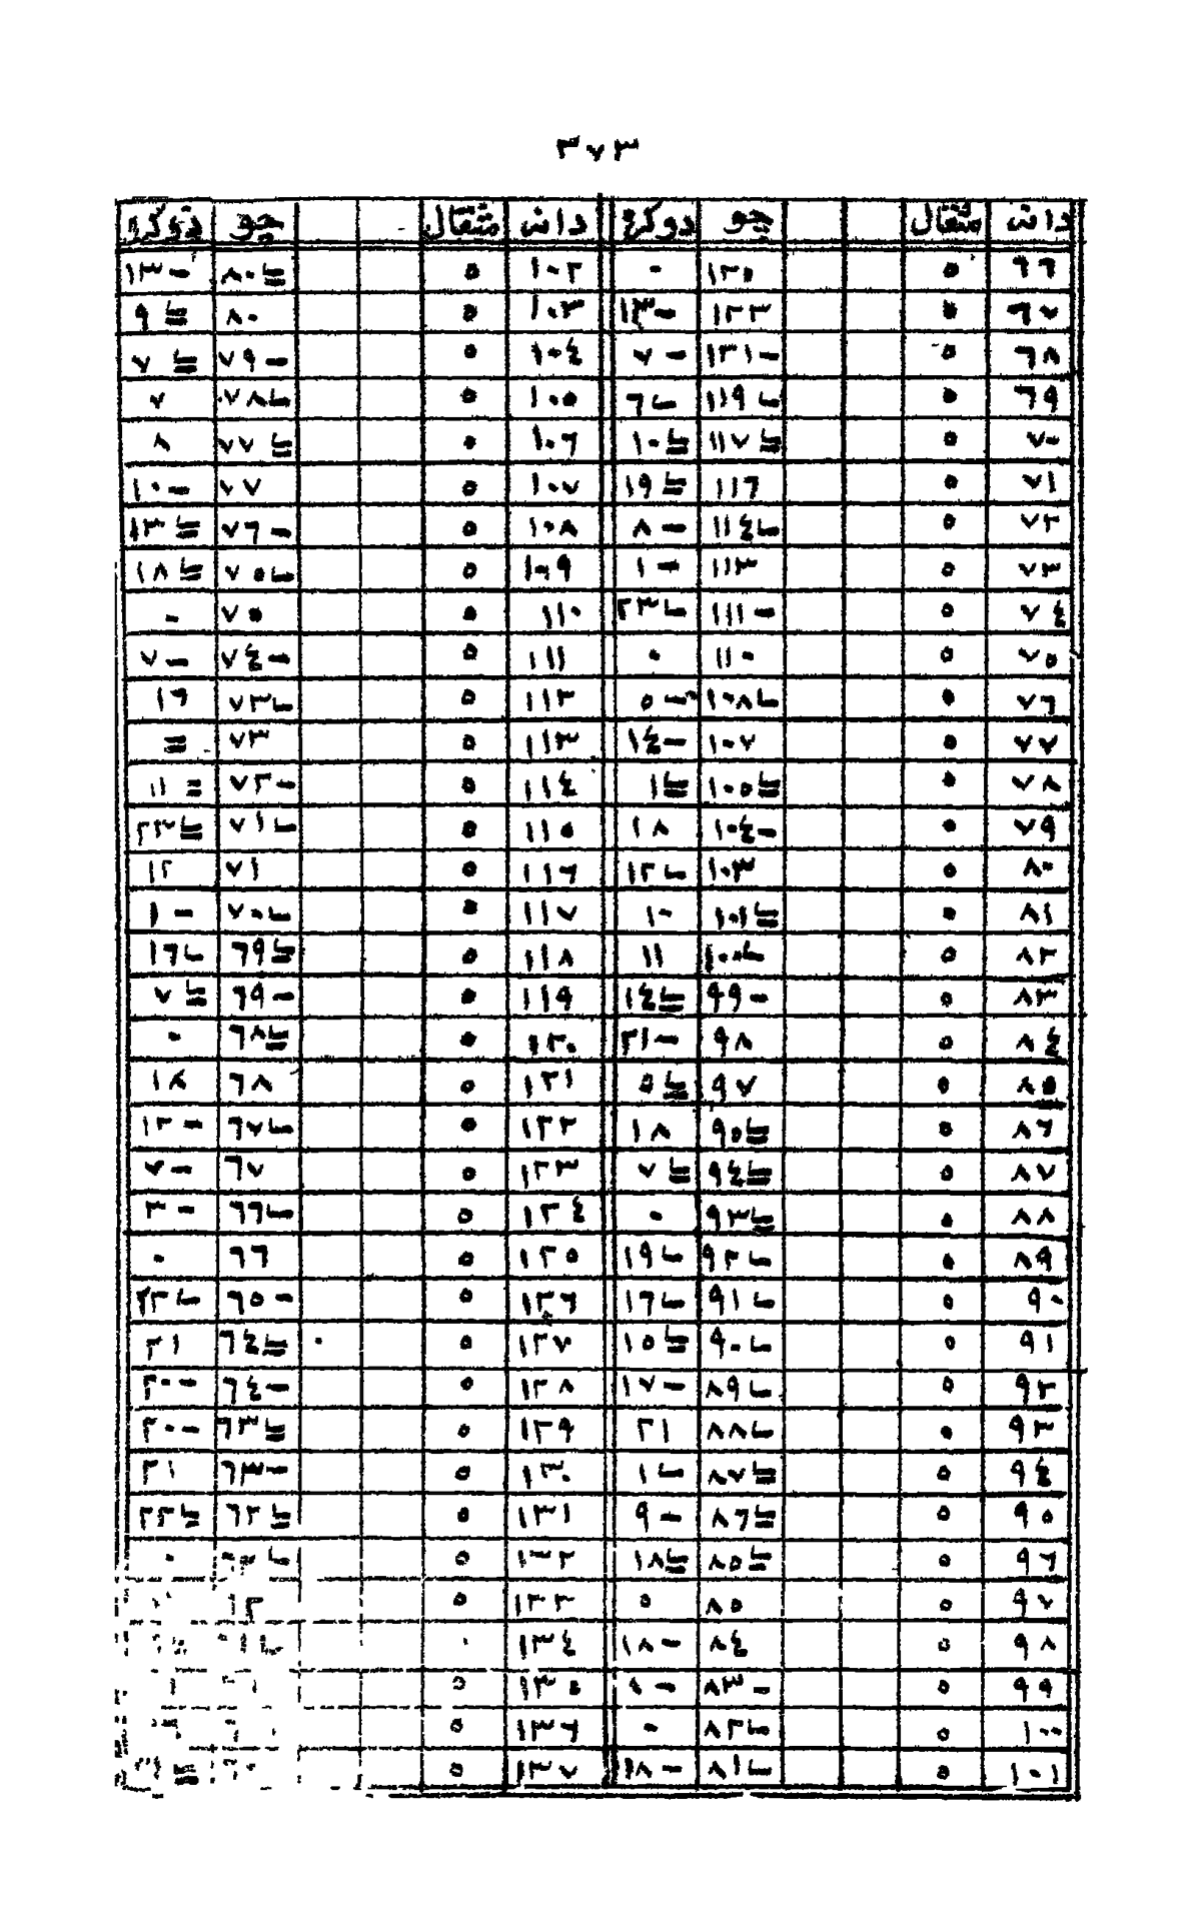 ٣٧٣
دانہ مثقال چو دوكرہ دانہ مثقال چو دوكرہ
٦٦ ٥ ١٢٥ ٠ ١٠٢ ٥ ٨٠≡ا ١٣-
٦٧ ٥ ١٢٣ ١٣- ١٠٣ ٥ ٨٠ ٩≡ا
٦٨ ٥ ١٢١- ٧- ١٠٤ ٥ ٧٩- ٧≡ا
٦٩ ٥ ١١٩ـا ٦ـا ١٠٥ ٥ ٧٨ـا ٧
٧٠ ٥ ١١٧≡ا ١٠≡ا ١٠٦ ٥ ٧٧≡ا ٨
٧١ ٥ ١١٦ ١٩≡ا ١٠٧ ٥ ٧٧ ١٠-
٧٢ ٥ ١١٤ـا ٨- ١٠٨ ٥ ٧٦- ١٣≡ا
٧٣ ٥ ١١٣ ١- ١٠٩ ٥ ٧٥ـا ١٨≡ا
٧٤ ٥ ١١١- ٢٣ـا ١١٠ ٥ ٧٥ ٠
٧٥ ٥ ١١٠ ٠ ١١١ ٥ ٧٤- ٧-
٧٦ ٥ ١٠٨ـا ٥- ١١٢ ٥ ٧٣ـا ١٦
٧٧ ٥ ١٠٧ ١٤- ١١٣ ٥ ٧٣ =
٧٨ ٥ ١٠٥≡ا ١≡ا ١١٤ ٥ ٧٢- ١١=
٧٩ ٥ ١٠٤- ١٨ ١١٥ ٥ ٧١ـا ٢٣≡ا
٨٠ ٥ ١٠٣ ١٢ـا ١١٦ ٥ ٧١ ١٢
٨١ ٥ ١٠١≡ا ١٠ ١١٧ ٥ ٧٠ـا ١-
٨٢ ٥ ١٠٠ـا ١١ ١١٨ ٥ ٦٩≡ا ١٦ـا
٨٣ ٥ ٩٩- ١٤≡ا ١١٩ ٥ ٦٩- ٧≡ا
٨٤ ٥ ٩٨ ٢١- ١٢٠ ٥ ٦٨≡ا ٠
٨٥ ٥ ٩٧ ٥≡ا ١٢١ ٥ ٦٨ ١٨
٨٦ ٥ ٩٥≡ا ١٨ ١٢٢ ٥ ٦٧ـا ١٢-
٨٧ ٥ ٩٤≡ا ٧≡ا ١٢٣ ٥ ٦٧ ٧-
٨٨ ٥ ٩٣≡ا ٠ ١٢٤ ٥ ٦٦ـا ٣-
٨٩ ٥ ٩٢ـا ١٩ـا ١٢٥ ٥ ٦٦ ٠
٩٠ ٥ ٩١ـا ١٦ـا ١٢٦ ٥ ٦٥- ٢٢ـا
٩١ ٥ ٩٠ـا ١٥≡ا ١٢٧ ٥ ٦٤≡ا ٢١
٩٢ ٥ ٨٩ـا ١٧- ١٢٨ ٥ ٦٤- ٢٠-
٩٣ ٥ ٨٨ـا ٢١ ١٢٩ ٥ ٦٣≡ا ٢٠-
٩٤ ٥ ٨٧≡ا ١ـا ١٣٠ ٥ ٦٣- ٢١
٩٥ ٥ ٨٦≡ا ٩- ١٣١ ٥ ٦٢≡ا ٢٢≡ا
٩٦ ٥ ٨٥≡ا ١٨≡ا ١٣٢ ٥
٩٧ ٥ ٨٥ ٥ ١٣٣ ٥
٩٨ ٥ ٨٤ ١٨- ١٣٤
٩٩ ٥ ٨٣- ٨- ١٣٥ ٥
١٠٠ ٥ ٨٢ـا ٠ ١٣٦ ٥
١٠١ ٥ ٨١ـا ١٨- ١٣٧ ٥